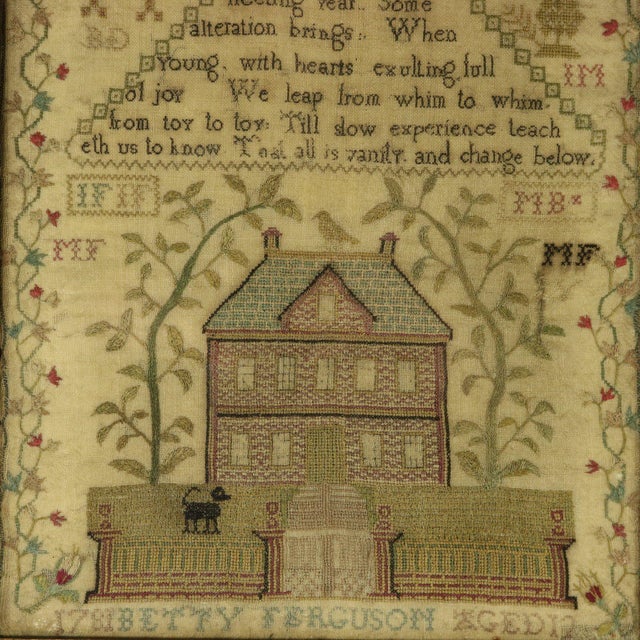 fleeting year. Some
alteration brings: When
RD
Young, with hearts exulting full
IM
of joy We leap from whim to whim,
from toy to toy: Till slow experience teach
eth us to know That all is vanity, and change below.
IF IF
MB
MF
MF
BETTY FERGUSON AGED